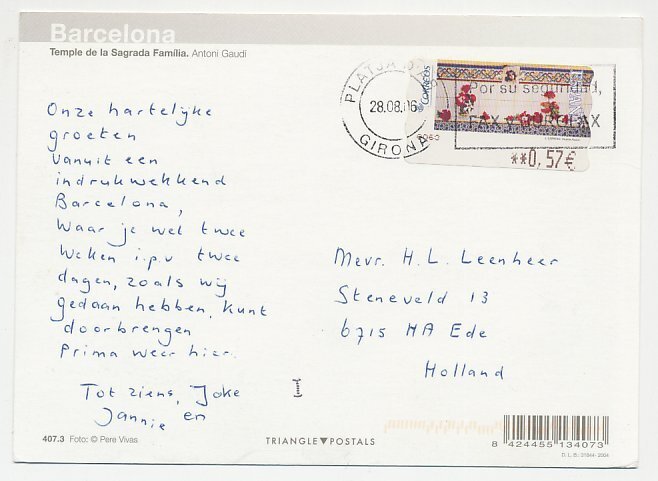 Barcelona
Temple de la Sagrada Família. Antoni Gaudí
CORREOS
PLATJA D'
28.08.06
GIRONA
Por su seguridad,
FAX y BUROFAX
**0,57€
Onze hartelijke
groeten
vanuit een
indrukwekkend
Barcelona,
Waar je wel twee
weken i.p.v twee
dagen, zoals wij
gedaan hebben, kunt
doorbrengen
Prima weer hier.
Tot ziens, Joke
Jannie en
Mevr. H. L. Leenheer
Steneveld 13
6715 HA Ede
Holland
407.3 Foto: © Pere Vivas
TRIANGLE▼POSTALS
8 424455 134073
D. L. B.: 31844-2004